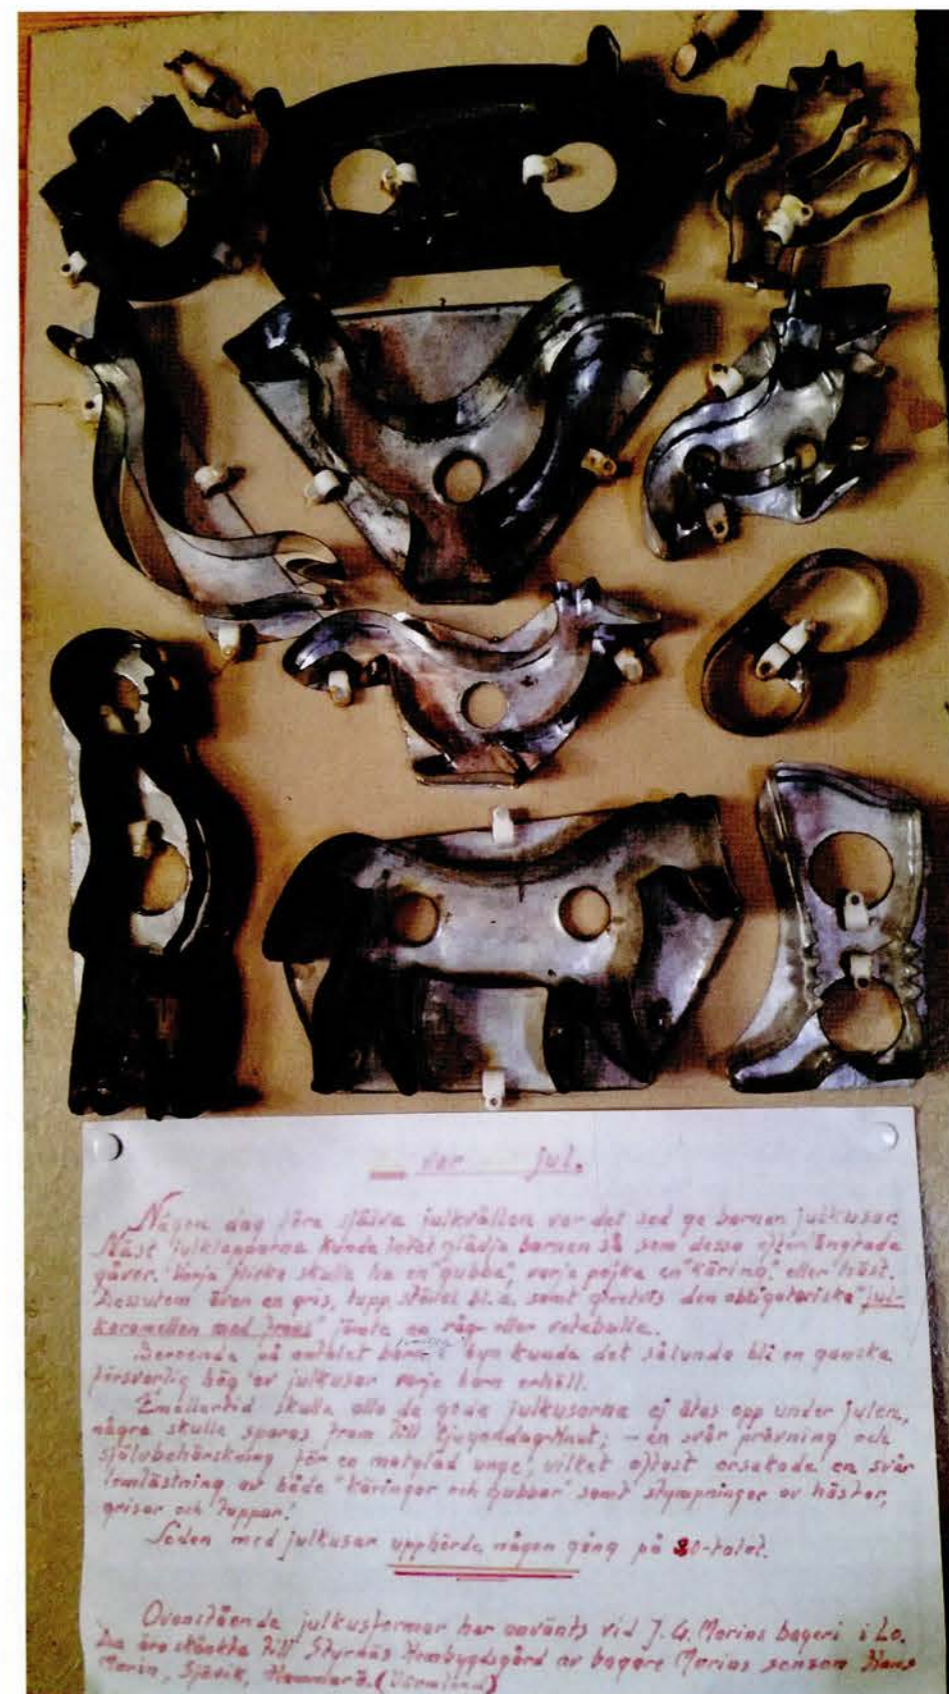 var jul.
Någon dag före själva julkvällen var det sed ge barnen julkusar.
Näst julklapparna kunde intet glädja barnen så som dessa efterlängtade
gåver. Varje flicka skulle ha en "gubbe", varje pojke en "käring" eller häst.
Dessutom även en gris, tupp, stövel bl.a. samt givetvis den obligatoriska "jul-
karamellen med frans" jämte en råg- eller vetebulle.
Beroende på antalet barn i byn kunde det sålunda bli en ganska
försvarlig hög av julkusar varje barn erhöll.
Emellertid skulle alla de goda julkusarna ej ätas opp under julen,
några skulle sparas fram till tjugondagKnut; - en svår prövning och
självbehärskning för en matglad unge, vilket oftast orsakade en svår
av både "käringar och gubbar" samt stympningar av hästar,
grisar och tuppar!
Seden med julkusar upphörde någon gång på 30-talet.
Ovanstående julkusformar har använts vid J. G. Morins bageri i Lo.
De äro skänkta till Styrnäs Hembygdsgård av bagare Morins sonson Hans
Morin, Sjövik, Hammarö. (Värmland)